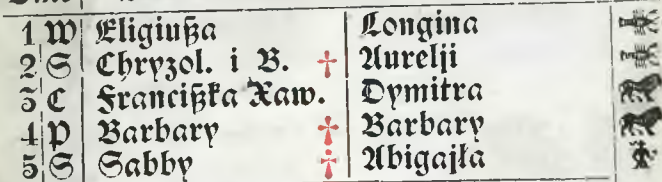 1 W Eligiußa Longina
2 S Chryzol. i B. † Aurelji
3 C Francißka Xaw. Dymitra
4 P Barbary † Barbary
5 S Sabby † Abigajła